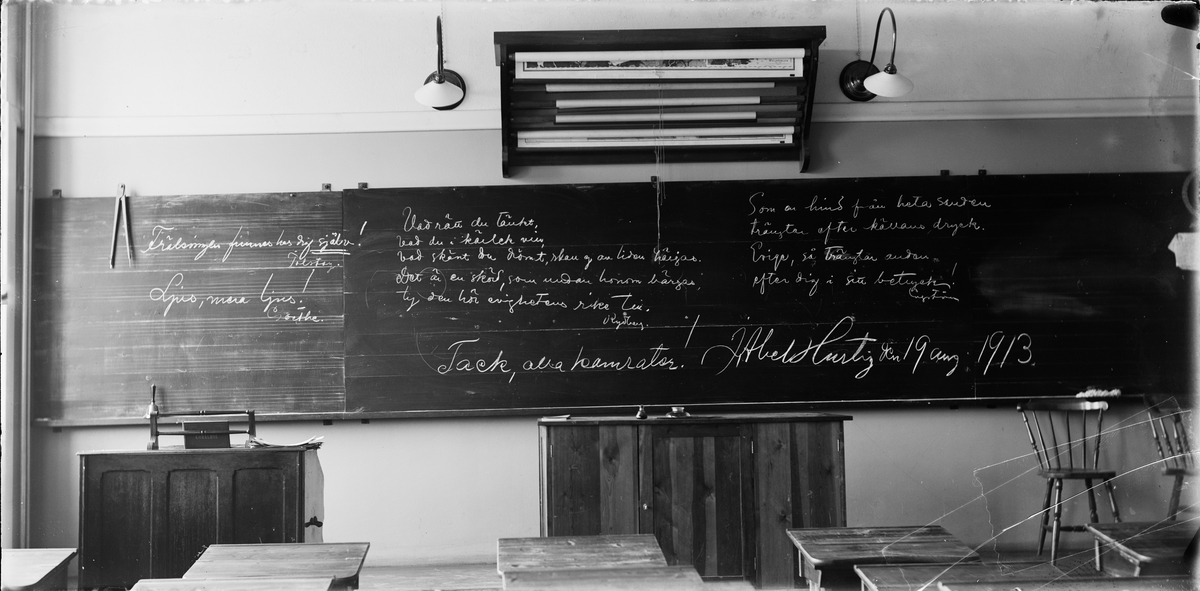 Frälsningen finnes hos dig själv!
Tolstoy.
Ljus, mera ljus!
Goethe.
Vad rätt du tänkt,
vad du i kärlek vill,
vad skönt du drömt, skall ej av tiden härjas.
Det är en skörd, som undan honom bärgas,
ty den hör evighetens rike till.
Rydberg.
Som en hind från heta
trängtar efter källans dryck.
Evige, så trängtar anden
efter dig i sitt betryck!
Tack, alla kamrater! J Abel Hurtig den 19 aug. 1913.